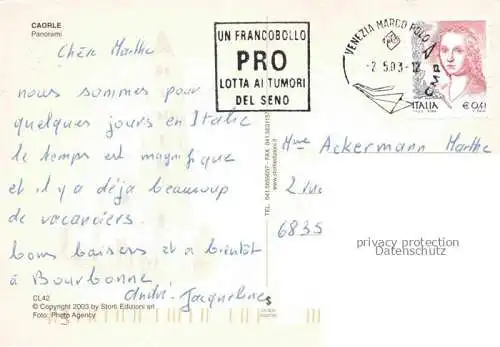 CAORLE
Panorami
Chère Marthe
nous sommes pour
quelques jours en Italie
le temps est magnifique
et il y a déjà beaucoup
de vacanciers.
bons baisers et a bientôt
à Bourbonne.
André - Jacqueline
CL42
© Copyright 2003 by Storti Edizioni srl
Foto: Photo Agency
UN FRANCOBOLLO
PRO
LOTTA AI TUMORI
DEL SENO
VENEZIA MARCO POLO A
CMP
-2.5.03-12
ITALIA €0,41
Mme Ackermann Marthe
2 rue
6835
privacy protection
Datenschutz